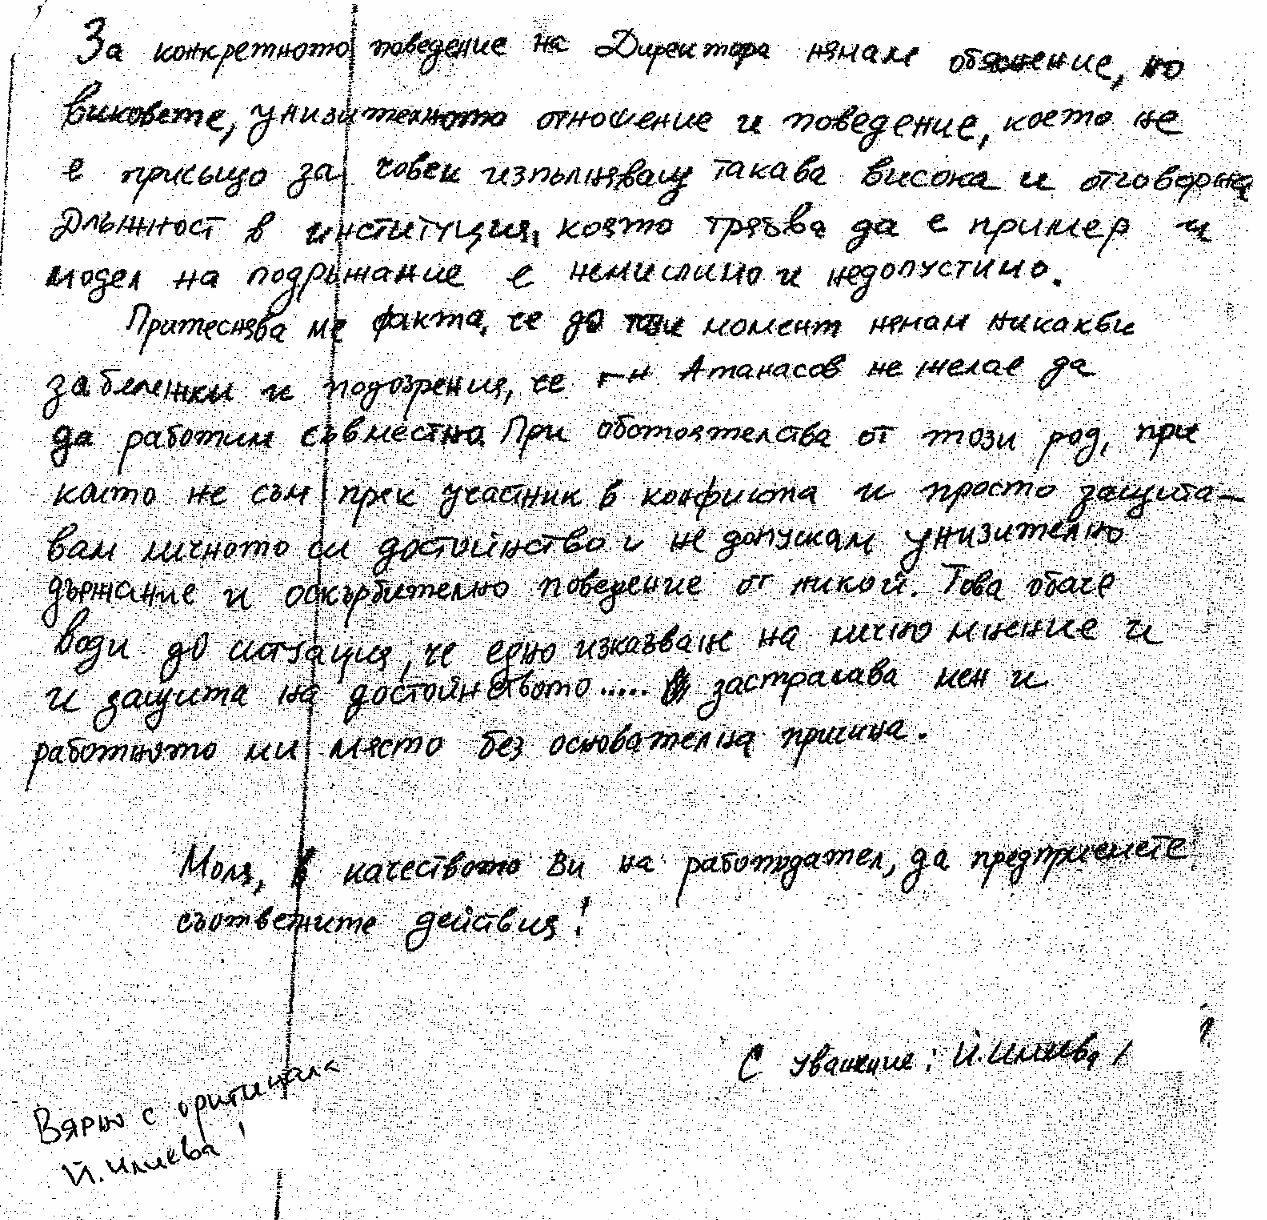 За конкретното поведение на Директора нямам обяснение, но
виковете, унизителното отношение и поведение, което не
е присъщо за човек изпълняващ такава висока и отговорна
длъжност в институция, която трябва да е пример и
модел на подръжание е немислимо и недопустимо.
Притеснява ме факта, че до този момент нямам никакви
забележки и подозрения, че г-н Атанасов не желае да
да работим съвместно. При обстоятелства от този род, при
които не съм пряк участник в конфликта и просто защита-
вам личното си достойнство и не допускам унизително
държание и оскърбително поведение от никой. Това обаче
води до ситуация, че едно изказване на лично мнение и
и защита на достойнството ..... застрашава мен и
работното ми място без основателна причина.
Моля, в качеството Ви на работодател, да предприемете
съответните действия!
С уважение: Й. Илиева /
Вярно с оригинала
Й. Илиева!